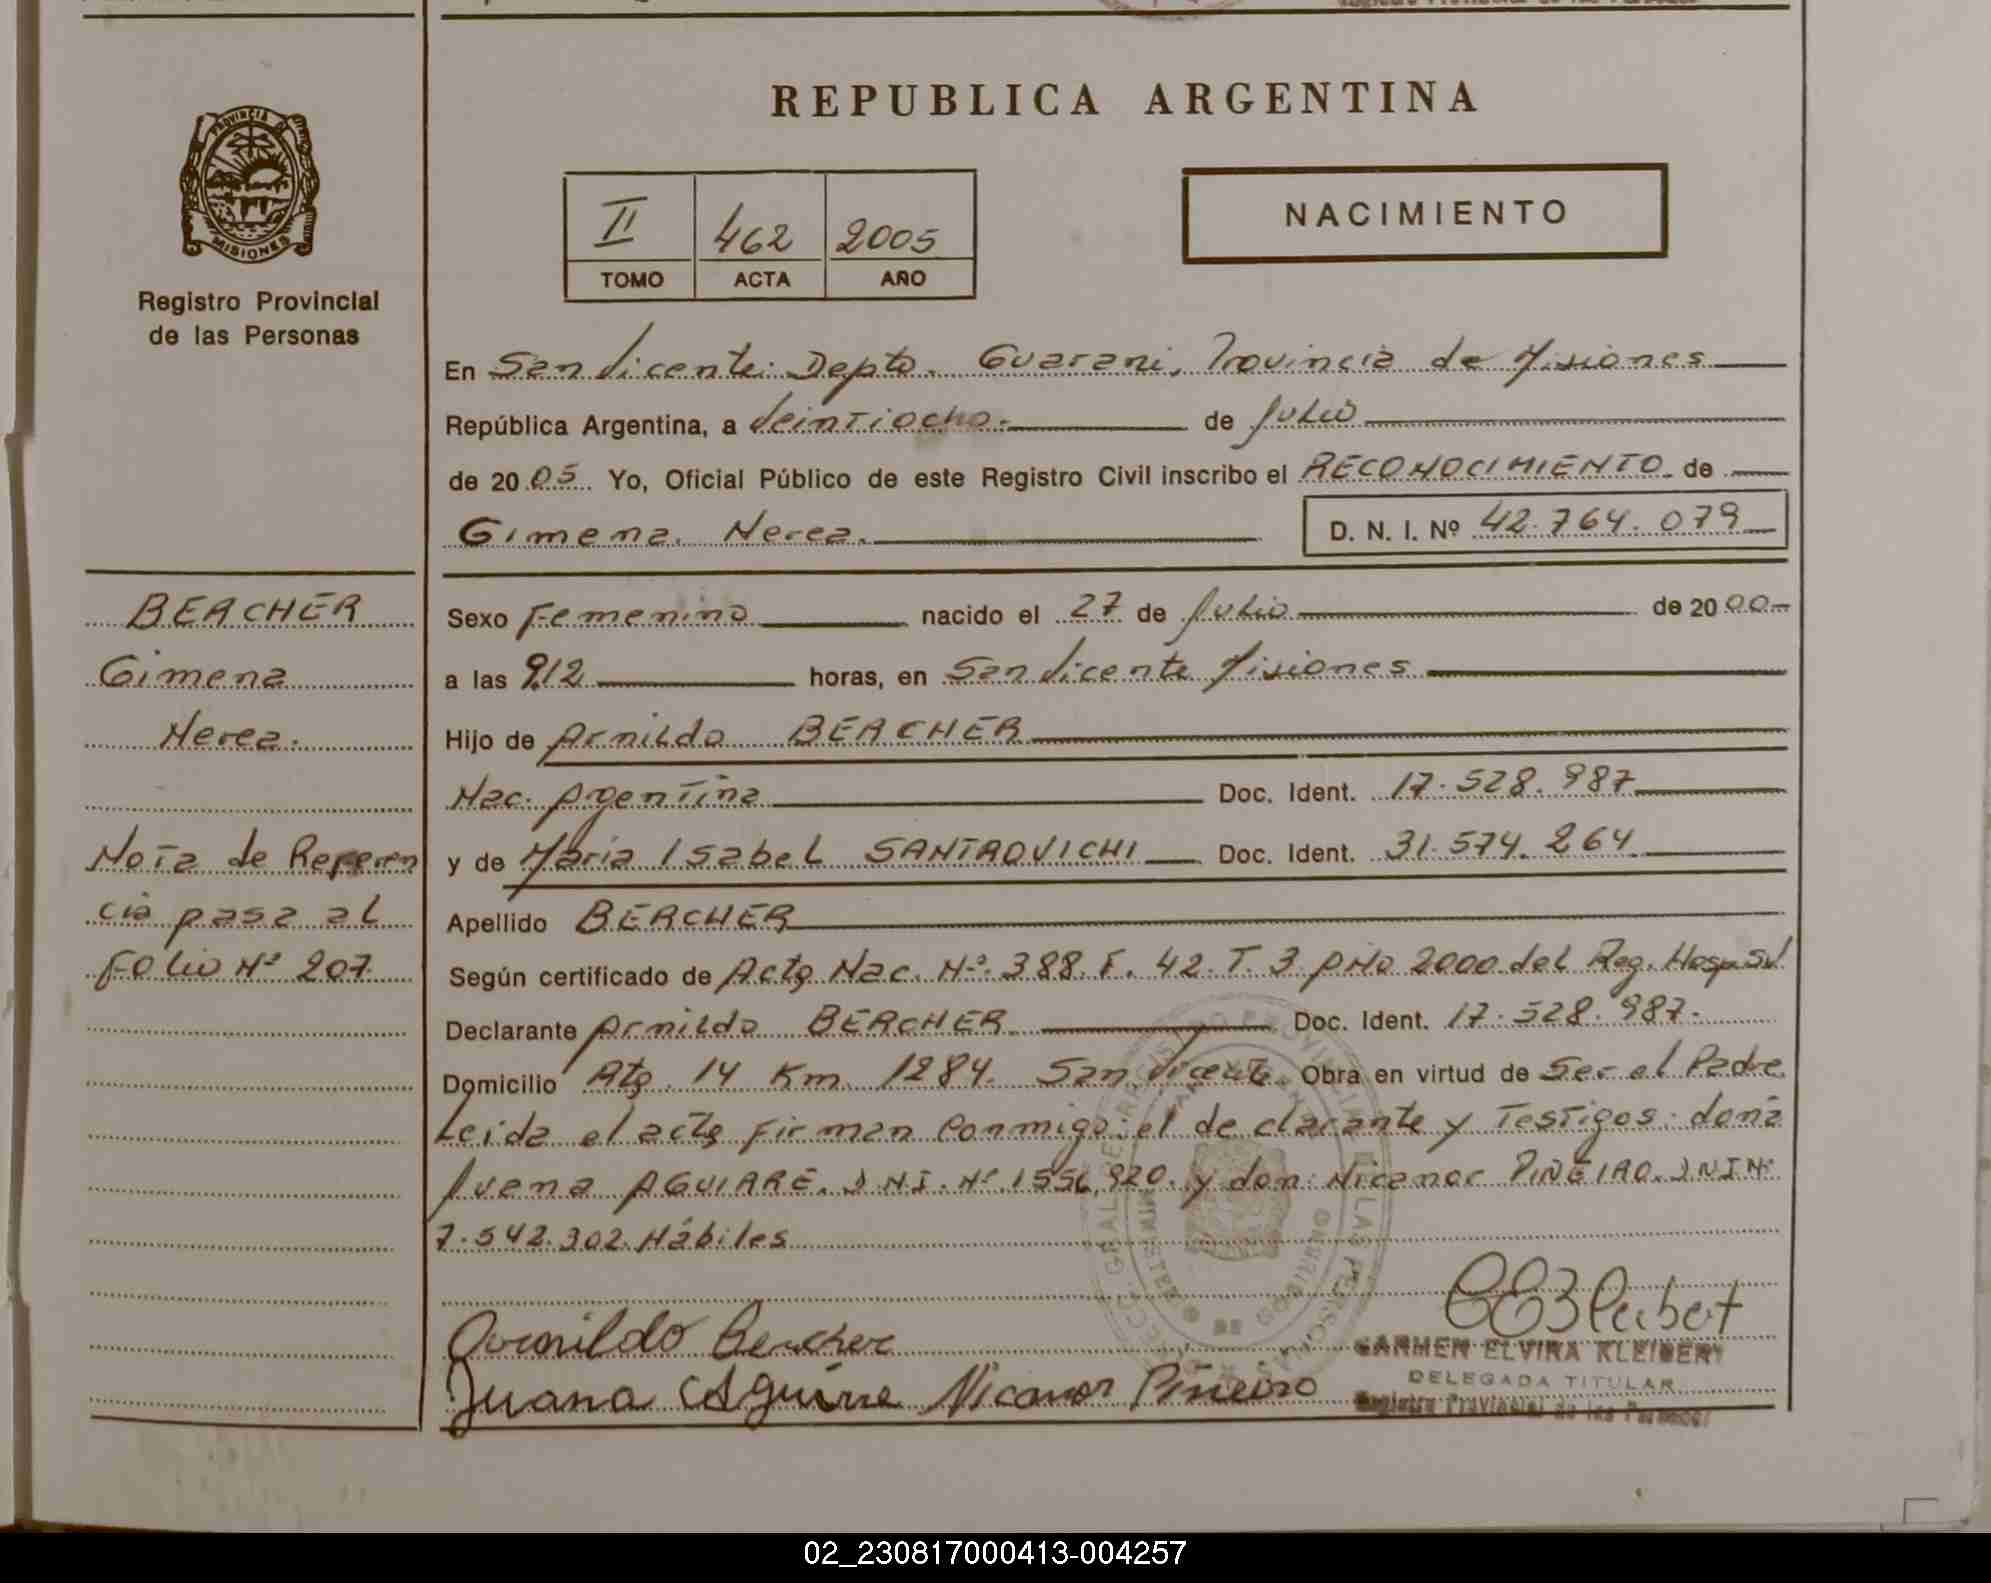 REPUBLICA ARGENTINA
PROVINCIA DE MISIONES
Registro Provincial
de las Personas
II 462 2005
TOMO ACTA AÑO
NACIMIENTO
En San Vicente. Depto. Guarani, Provincia de Misiones
República Argentina, a Veintiocho.- de Julio
de 2005 Yo, Oficial Público de este Registro Civil inscribo el RECONOCIMIENTO de
Gimena Nerea. D. N. I. Nº 42.764.079
BERCHER
Gimena
Nerea.
Nota de Referen
cia pasa al
Folio Nº 207.
Sexo Femenino nacido el 27 de Julio de 2000
a las 9,12 horas, en San Vicente Misiones
Hijo de Arnildo BERCHER
Nac. Argentina Doc. Ident. 17.528.987
y de Maria Isabel SANTROVICHI Doc. Ident. 31.574.264
Apellido BERCHER
Según certificado de Acta Nac. Nº 388. F. 42. T. 3 Año 2000 del Reg. Hosp. SV
Declarante Arnildo BERCHER Doc. Ident. 17.528.987.
Domicilio Rta. 14 Km 1284. San Vicente. Obra en virtud de Ser el Padre
Leida el acta firman conmigo: el declarante y Testigos: doña
Juana AGUIRRE. DNI. Nº 1556.920. y don: Nicanor PIÑEIRO. DNI Nº
7.542.302. Hábiles
Arnildo Bercher
Juana Aguirre Nicanor Piñeiro
CEKleibert
CARMEN ELVIRA KLEIBERT
DELEGADA TITULAR
Registro Provincial de las Personas
02_230817000413-004257